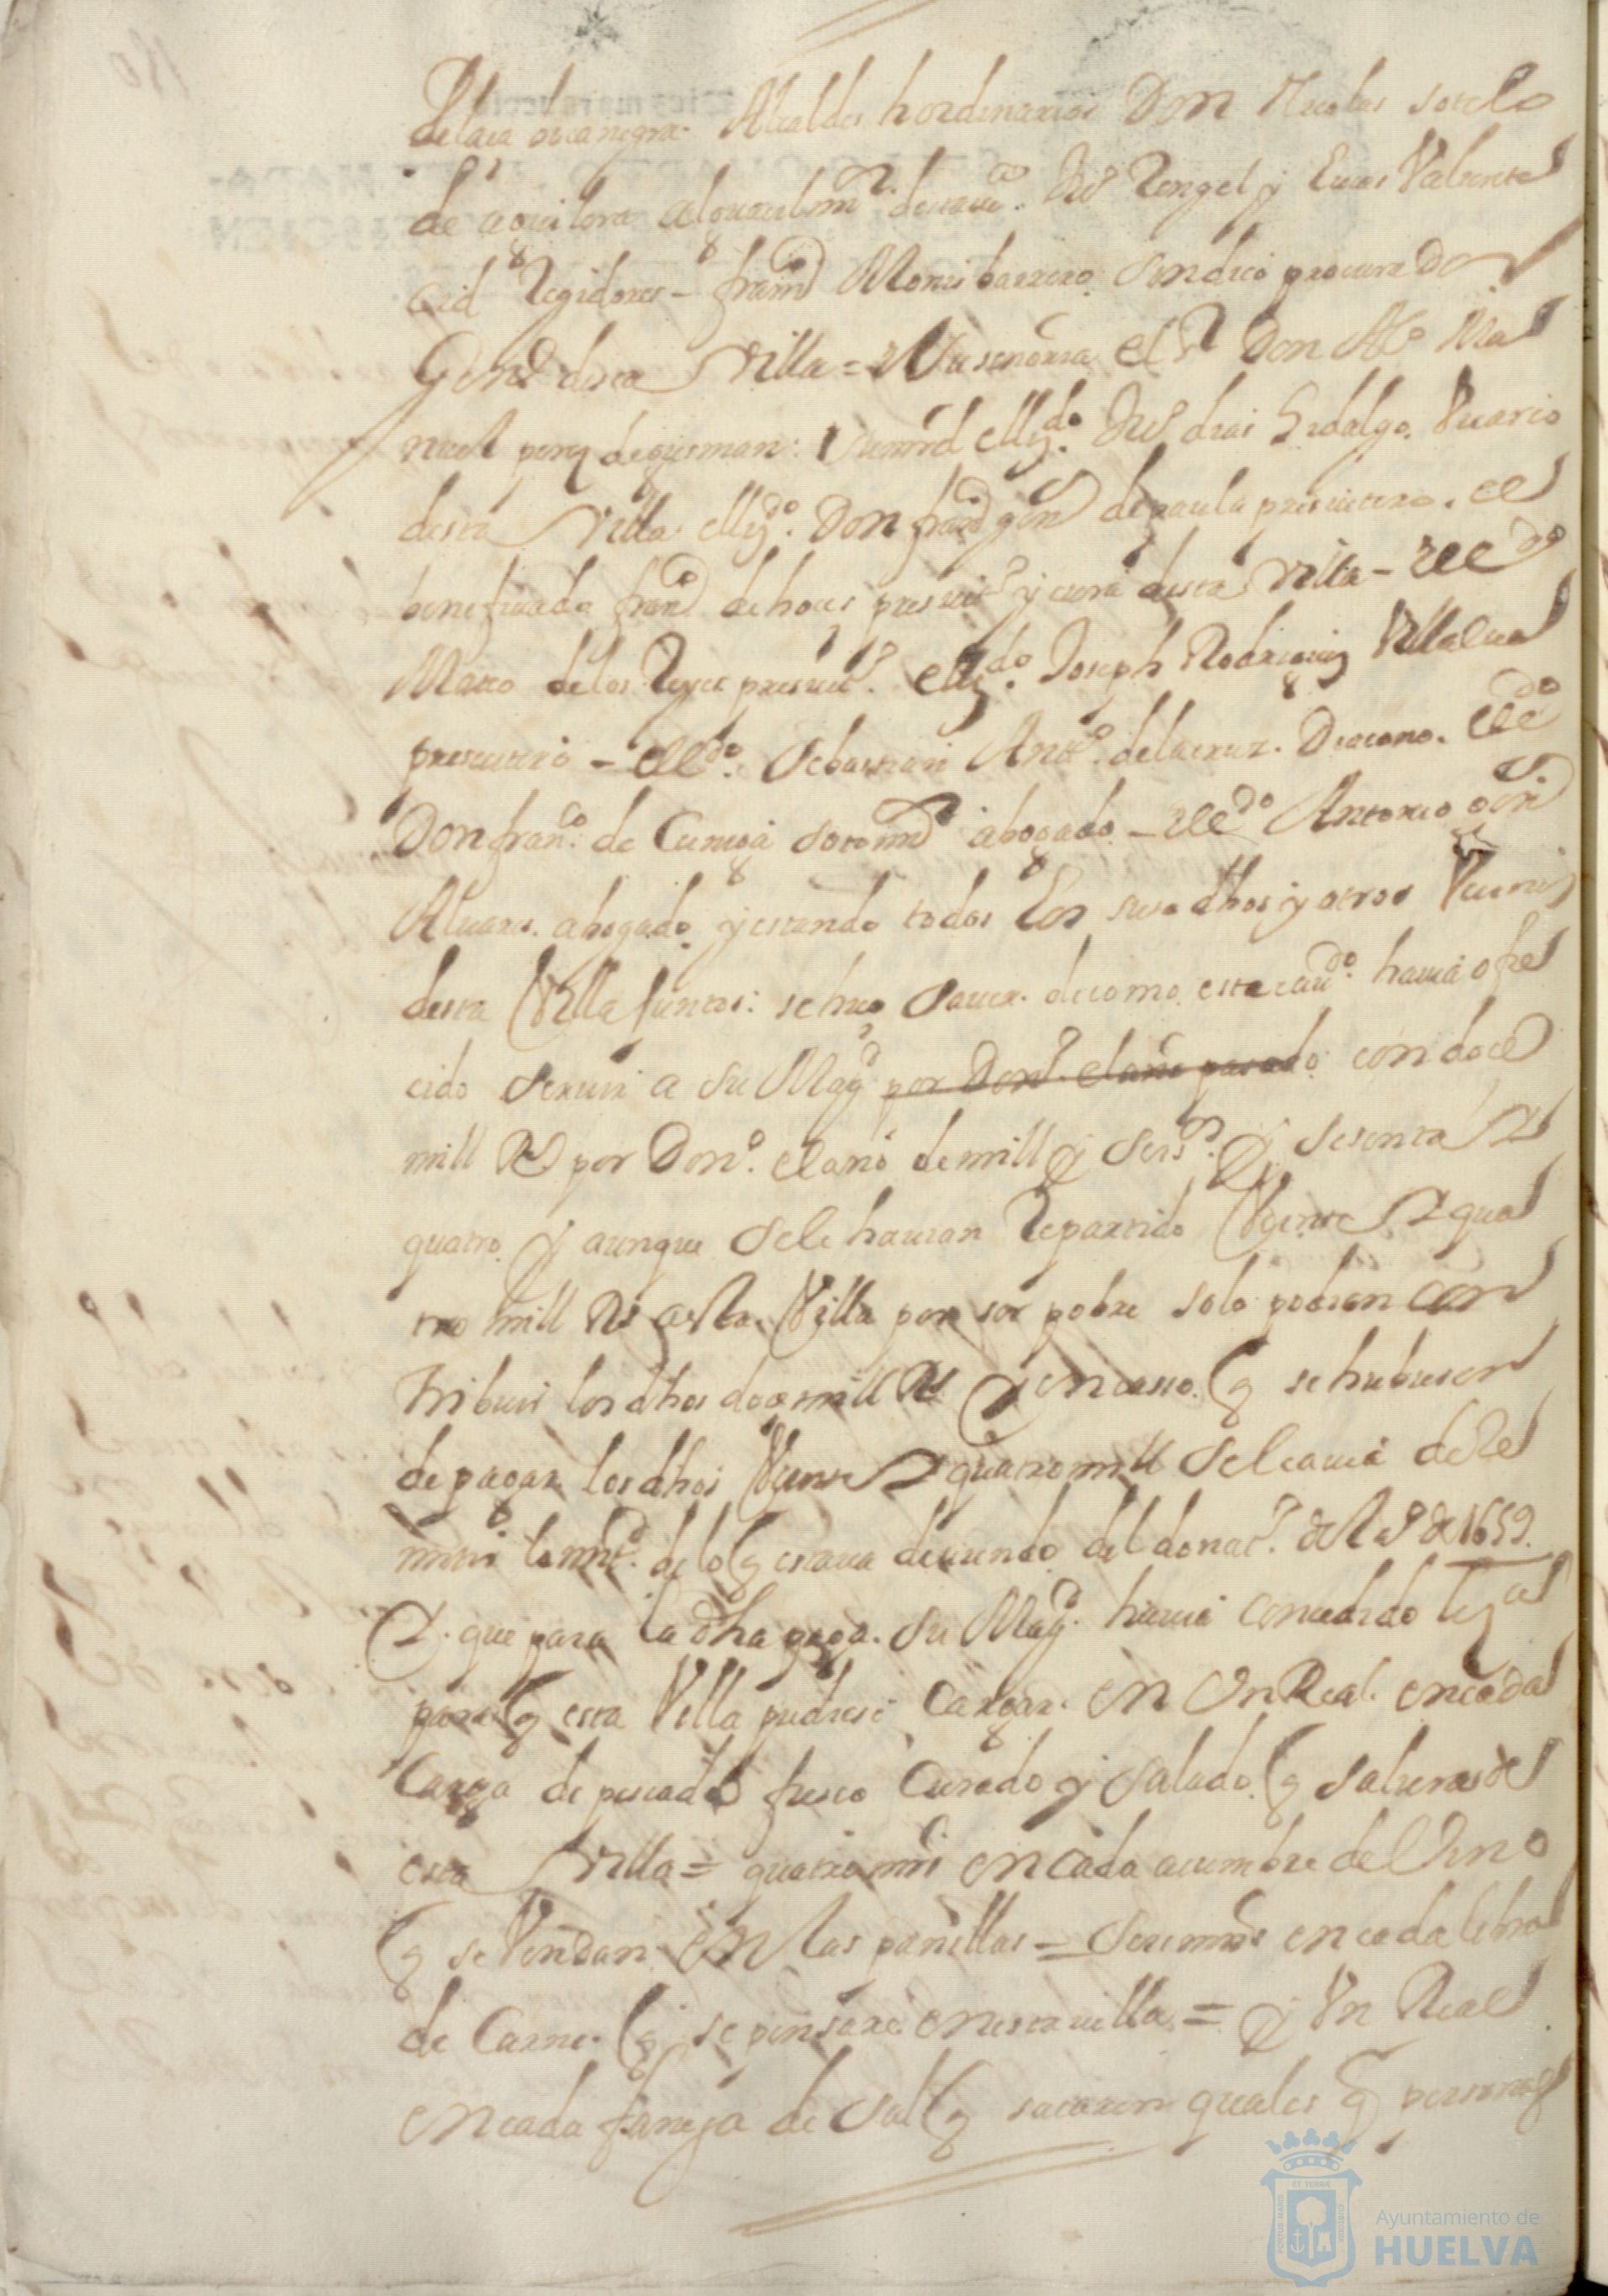 de lara bocanegra Alcaldes hordinarios Don Nicolas sotelo
de aguilera alguacil mr. Juo Rengel y Lucas Valiente
cid Regidores – franco Monis barrero sindico procurador
Genl desta Villa = Su senoria el sr Don Alo Ma
nuel perez de gusman: Su md el ldo. Juo dias hidalgo Vicario
desta Villa el ldo. Don franco gon de paula presvitero. el
beneficiado franco de hoces presvito y cura desta Villa – el ldo
Marco de los Reyes presvito. el ldo. Joseph Rodriguez Villalva
presvitero – el ldo. Sebastian Anto. de la cruz. Diacono. el ldo
Don franco. de Cuniga abogado – el ldo Antonio
Alvares abogado y estando todos los suso dhos y otros Vecinos
desta Villa Juntos: se hizo saver de como este cavdo. havia ofre
cido servir a Su Magd por Dono. el año pasado con doce
mill Rs por Dono. el año de mill y seiss. y sesenta y
quatro y aunque se le havian Repartido Veinte y qua
tro mill Rs a esta Villa por ser pobre solo podian con
tribuir los dhos doce mill Rs y en casso q se hubiesen
de pagar los dhos Veinte y quatro mill se le havia de Re
mitir lo mt. de lo q estava deviendo del donato. de el ao de 1659.
y que para la dha paga. Su Magd. havia concedido
para q esta Villa pudiese Cargar en Un Real en cada
Carga de pescado fresco Curado y salado q saliera de
esta Villa = quatro mrs en cada acumbre de Vino
q se Vendan en las panillas = seis mrs en cada libra
de Carne q se pensare en esta villa = y Un Real
en cada fanega de sal q sacaren quales q personas
Ayuntamiento de
HUELVA